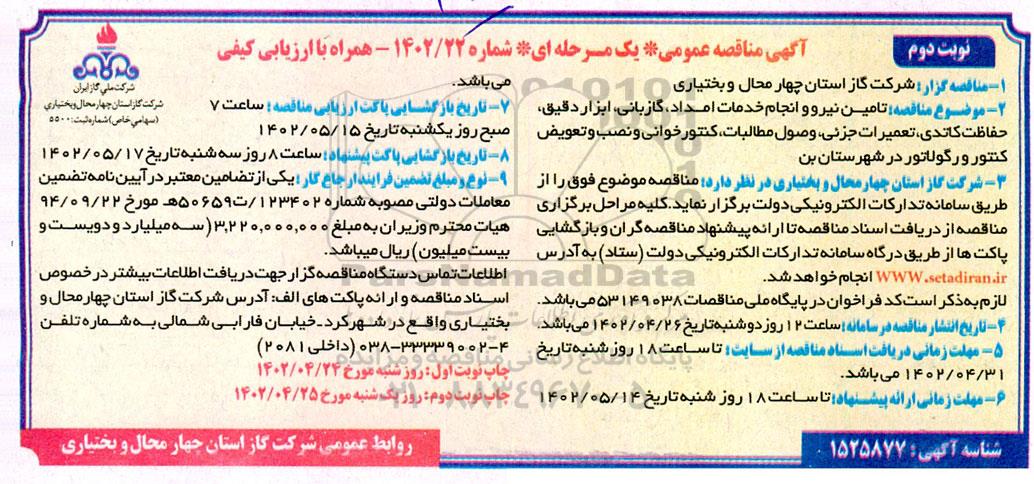 نوبت دوم
آگهی مناقصه عمومی* یک مرحله ای* شماره ۱۴۰۲/۲۲ - همراه با ارزیابی کیفی
شرکت ملی گاز ایران
شرکت گاز استان چهار محال و بختیاری
(سهامی خاص) شماره ثبت: ۵۵۰۰
۱- مناقصه گزار: شرکت گاز استان چهار محال و بختیاری
۲- موضوع مناقصه: تامین نیرو و انجام خدمات امداد، گازبانی، ابزار دقیق،
حفاظت کاتدی، تعمیرات جزئی، وصول مطالبات، کنتور خوانی و نصب و تعویض
کنتور و رگولاتور در شهرستان بن
۳- شرکت گاز استان چهار محال و بختیاری در نظر دارد: مناقصه موضوع فوق را از
طریق سامانه تدارکات الکترونیکی دولت برگزار نماید. کلیه مراحل برگزاری
مناقصه از دریافت اسناد مناقصه تا ارائه پیشنهاد مناقصه گران و بازگشایی
پاکت ها از طریق درگاه سامانه تدارکات الکترونیکی دولت (ستاد) به آدرس
WWW.setadiran.ir انجام خواهد شد.
لازم به ذکر است کد فراخوان در پایگاه ملی مناقصات ۵۳۱۴۹۰۳۸ می باشد.
۴- تاریخ انتشار مناقصه در سامانه: ساعت ۱۲ روز دوشنبه تاریخ ۱۴۰۲/۰۴/۲۶ می باشد.
۵- مهلت زمانی دریافت اسناد مناقصه از سایت: تا ساعت ۱۸ روز شنبه تاریخ
۱۴۰۲/۰۴/۳۱ می باشد.
۶- مهلت زمانی ارائه پیشنهاد: تا ساعت ۱۸ روز شنبه تاریخ ۱۴۰۲/۰۵/۱۴
می باشد.
۷- تاریخ بازگشایی پاکت ارزیابی مناقصه: ساعت ۷
صبح روز یکشنبه تاریخ ۱۴۰۲/۰۵/۱۵
۸- تاریخ بازگشایی پاکت پیشنهاد: ساعت ۸ روز سه شنبه تاریخ ۱۴۰۲/۰۵/۱۷
۹- نوع و مبلغ تضمین فرایند ارجاع کار: یکی از تضامین معتبر در آیین نامه تضمین
معاملات دولتی مصوبه شماره ۱۲۳۴۰۲/ت۵۰۶۵۹هـ مورخ ۹۴/۰۹/۲۲
هیات محترم وزیران به مبلغ ۳,۲۲۰,۰۰۰,۰۰۰ (سه میلیارد و دویست و
بیست میلیون) ریال میباشد.
اطلاعات تماس دستگاه مناقصه گزار جهت دریافت اطلاعات بیشتر در خصوص
اسناد مناقصه و ارائه پاکت های الف: آدرس شرکت گاز استان چهار محال و
بختیاری واقع در شهرکرد - خیابان فارابی شمالی به شماره تلفن
۰۳۸-۳۳۳۳۹۰۰۲-۴ (داخلی ۲۰۸۱)
چاپ نوبت اول: روز شنبه مورخ ۱۴۰۲/۰۴/۲۴
چاپ نوبت دوم: روز یک شنبه مورخ ۱۴۰۲/۰۴/۲۵
شناسه آگهی: ۱۵۲۵۸۷۷
روابط عمومی شرکت گاز استان چهار محال و بختیاری
ParsNamadData
پایگاه اطلاع رسانی مناقصه و مزایده
۰۲۱-۸۸۳۴۹۶۷۰-۵